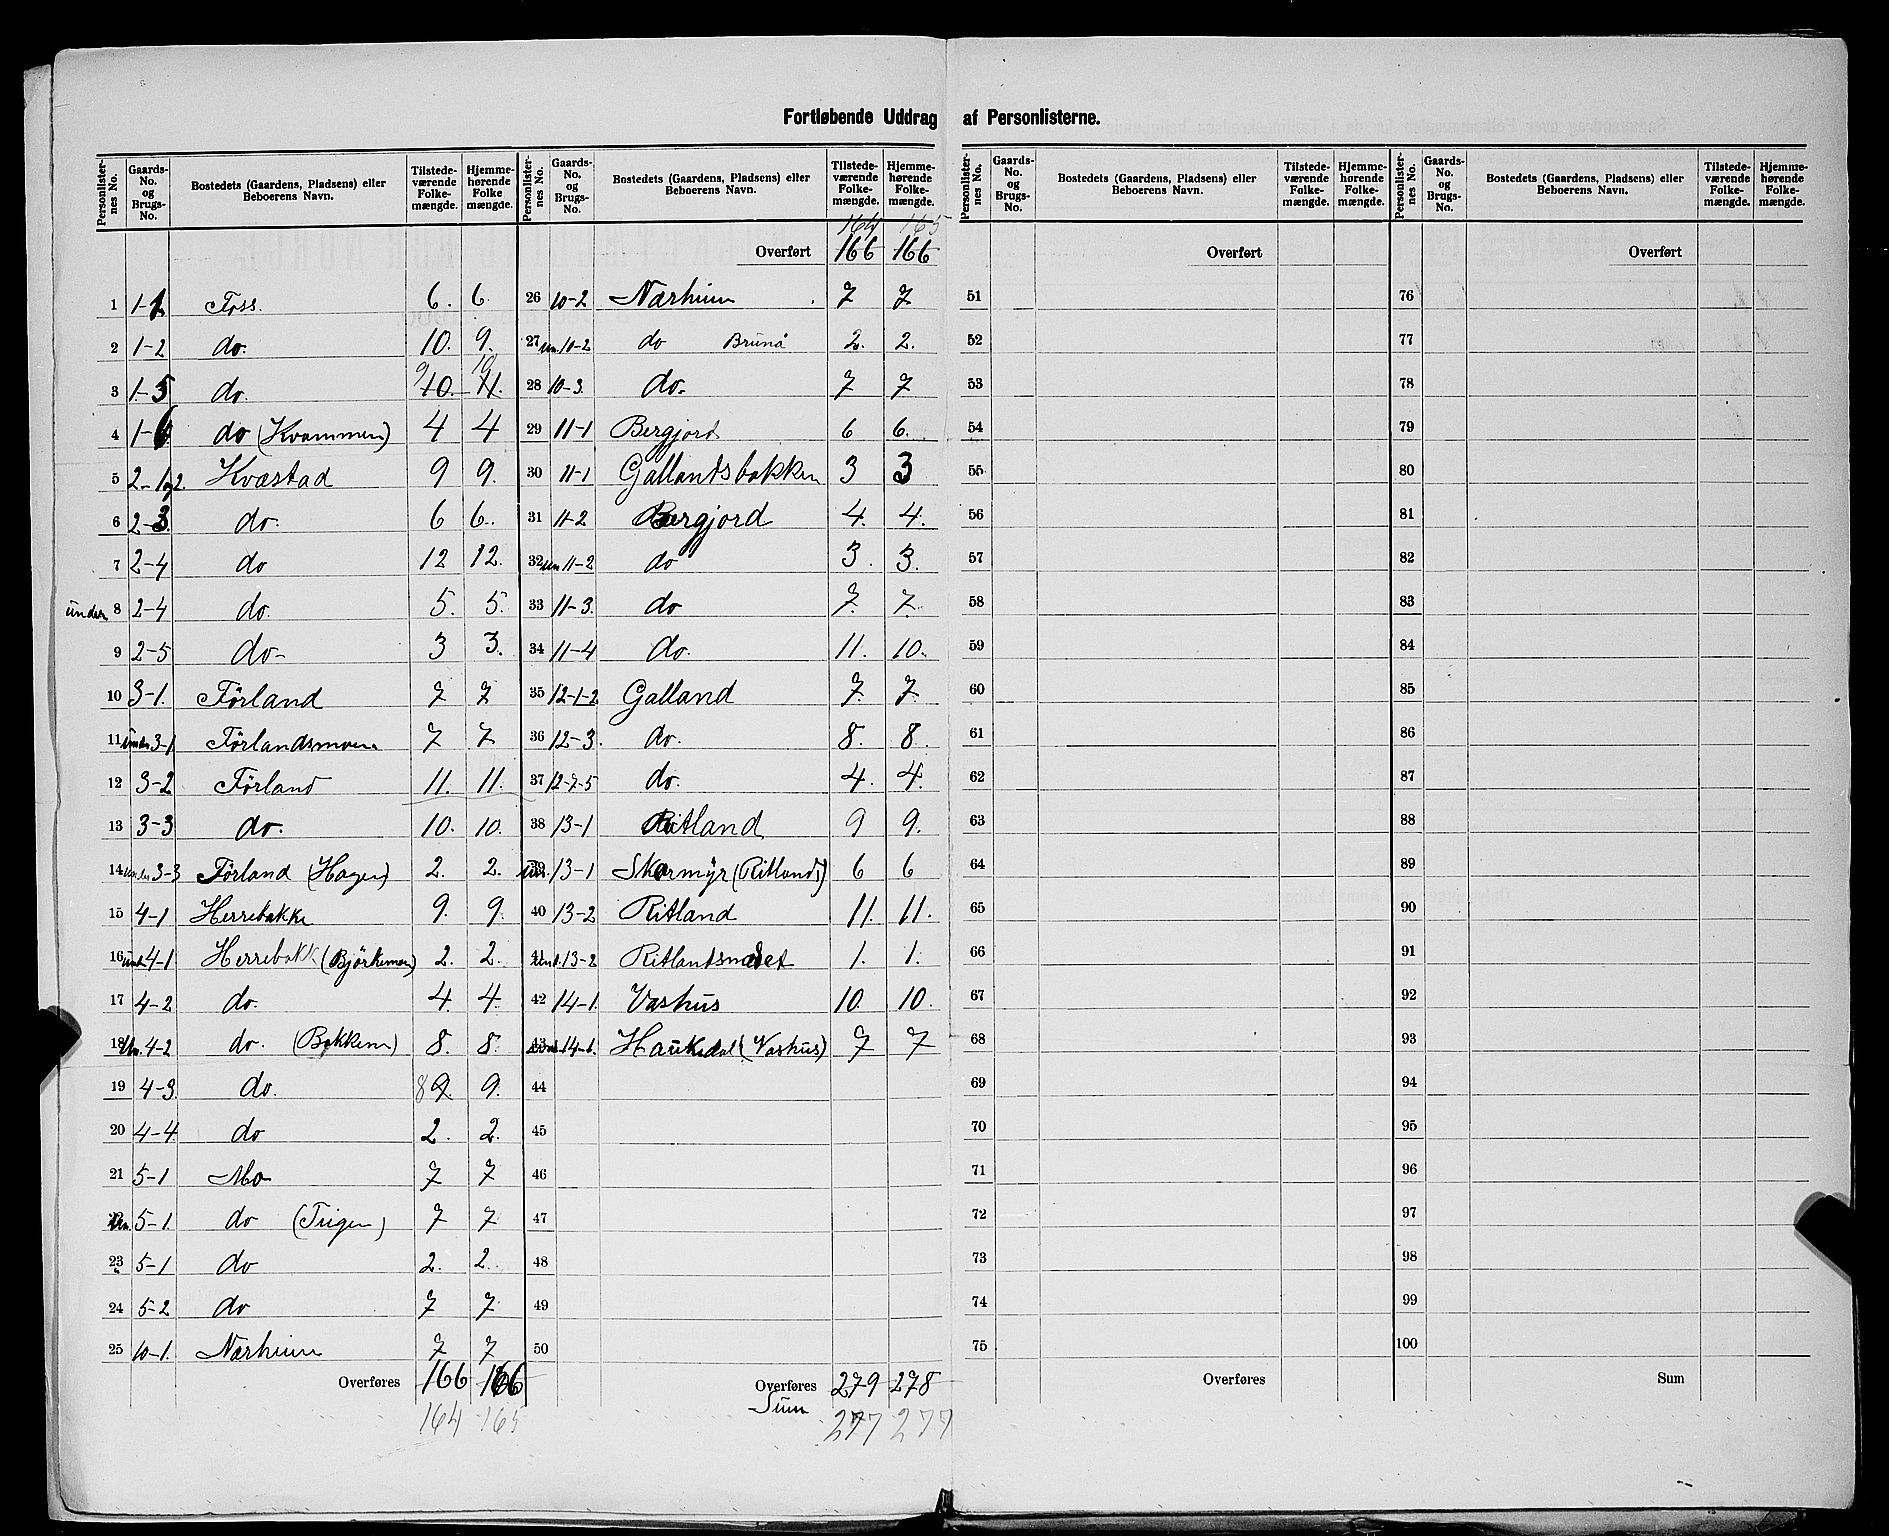 Fortløbende Uddrag af Personlisterne.
Personlister-nes No. | Gaards-No. og Brugs-No. | Bostedets (Gaardens, Pladsens) eller Beboerens Navn. | Tilstede-værende Folke-mængde. | Hjemme-hørende Folke mængde.
1 1-1 Foss. 6. 6.
2 1-2 do. 10. 9.
3 1-5 do. 9 10. 10 11.
4 1-6 do (Kvammen) 4 4
5 2-1 og 2. Kvæstad 9 9.
6 2-3 do. 6 6.
7 2-4 do 12 12.
under 8 2-4 do. 5. 5.
9 2-5 do- 3 3.
10 3-1. Førland 7 7
11 under 3-1 Førlandsmoen 7 7
12 3-2 Førland 11. 11.
13 3-3 do. 10. 10.
14 under 3-3 Førland (Hagen) 2. 2.
15 4-1 Herrebakke 9. 9.
16 und 4-1 Herrebakk (Bjørkemoen) 2. 2.
17 4-2 do. 4. 4.
18 Un. 4-2 do. (Bakken) 8. 8.
19 4-3 do. 8 9. 9.
20 4-4 do 2. 2.
21 5-1 Mo 7 7
22 Un. 5-1. do (Teigen) 7 7
23 5-1 do 2. 2.
24 5-2 do 7 7
25 10-1. Nærheim 7 7
Overføres 166 166
164 165
Personlister-nes No. | Gaards-No. og Brugs-No. | Bostedets (Gaardens, Pladsens) eller Beboerens Navn. | Tilstede-værende Folke-mængde. | Hjemme-hørende Folke-mængde.
164 165
Overført 166 166
26 10-2 Nærheim 7 7
27 un. 10-2 do Brunå 2. 2.
28 10-3. do. 7 7
29 11-1 Bergjord 6 6.
30 11-1 Gallandsbakken 3 3
31 11-2 Bergjord 4. 4.
32 un 11-2 do 3. 3.
33 11-3. do 7. 7.
34 11-4 do. 11. 10.
35 12-1-2 Galland 7. 7.
36 12-3. do. 8. 8.
37 12-7-5 do. 4. 4.
38 13-1 Ritland 9 9.
39 Un. 13-1 Skarmyr (Ritland) 6 6
40 13-2 Ritland 11. 11.
41 Und. 13-2 Ritlandsnæset 1. 1.
42 14-1. Vashus 10. 10.
43 14-1. Haukedal (Vashus) 7 7
44
45
46
47
48
49
50
Overføres 279 278
Sum 277 277
Personlister-nes No. | Gaards-No. og Brugs-No. | Bostedets (Gaardens, Pladsens) eller Beboerens Navn. | Tilstede-værende Folke-mængde. | Hjemme-hørende Folke-mængde.
Overført
51
52
53
54
55
56
57
58
59
60
61
62
63
64
65
66
67
68
69
70
71
72
73
74
75
Overføres
Personlister-nes No. | Gaards-No. og Brugs-No. | Bostedets (Gaardens, Pladsens) eller Beboerens Navn. | Tilstede-værende Folke-mængde. | Hjemme-hørende Folke-mængde.
Overført
76
77
78
79
80
81
82
83
84
85
86
87
88
89
90
91
92
93
94
95
96
97
98
99
100
Sum